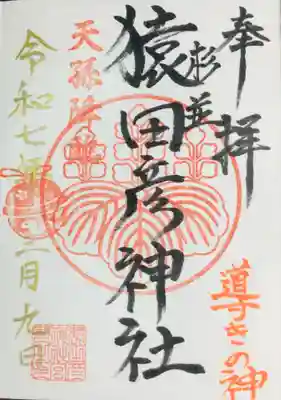 奉拝
杉並
猿田彦神社
導きの神
天孫降臨
令和七年二月九日